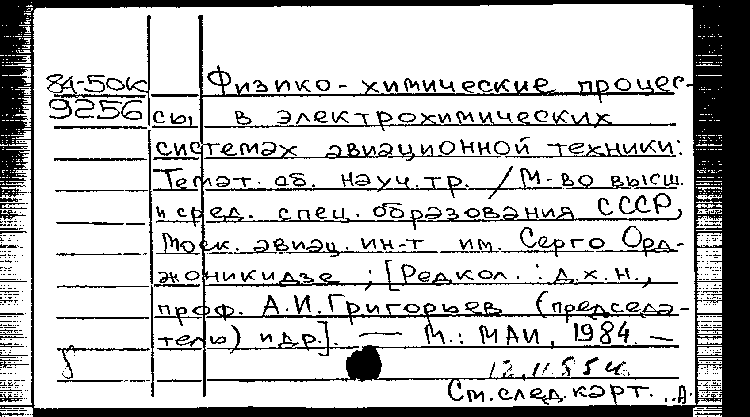 84-50к Физико-химические процес-
9256 сы, в электрохимических
системах авиационной техники:
Темат. сб. науч. тр. / М-во высш.
и сред. спец. образования СССР,
Моск. авиац. ин-т им. Серго Орд-
жоникидзе ; [Редкол. : д.х.н.,
проф. А.И. Григорьев (председа-
тель) и др.]. — М. : МАИ, 1984. —
См. след. карт.